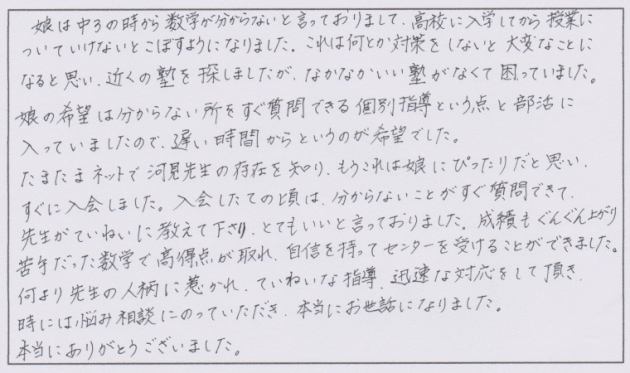 娘は中3の時から数学が分からないと言っておりまして、高校に入学してから授業に
ついていけないとこぼすようになりました。これは何とか対策をしないと大変なことに
なると思い、近くの塾を探しましたが、なかなかいい塾がなくて困っていました。
娘の希望は分からない所をすぐ質問できる個別指導という点と部活に
入っていましたので、遅い時間からというのが希望でした。
たまたまネットで河見先生の存在を知り、もうこれは娘にぴったりだと思い、
すぐに入会しました。入会したての頃は、分からないことがすぐ質問できて、
先生がていねいに教えて下さり、とてもいいと言っておりました。成績もぐんぐん上がり
苦手だった数学で高得点が取れ、自信を持ってセンターを受けることができました。
何より先生の人柄に惹かれ、ていねいな指導、迅速な対応をして頂き、
時には悩み相談にのっていただき、本当にお世話になりました。
本当にありがとうございました。